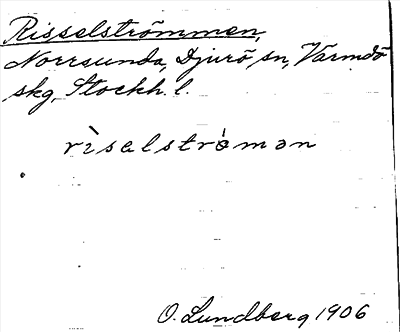 Risselströmmen,
Norrsunda, Djurö sn, Värmdö
skg, Stockh. l.
rìsəlstrə̀mən
O. Lundberg 1906